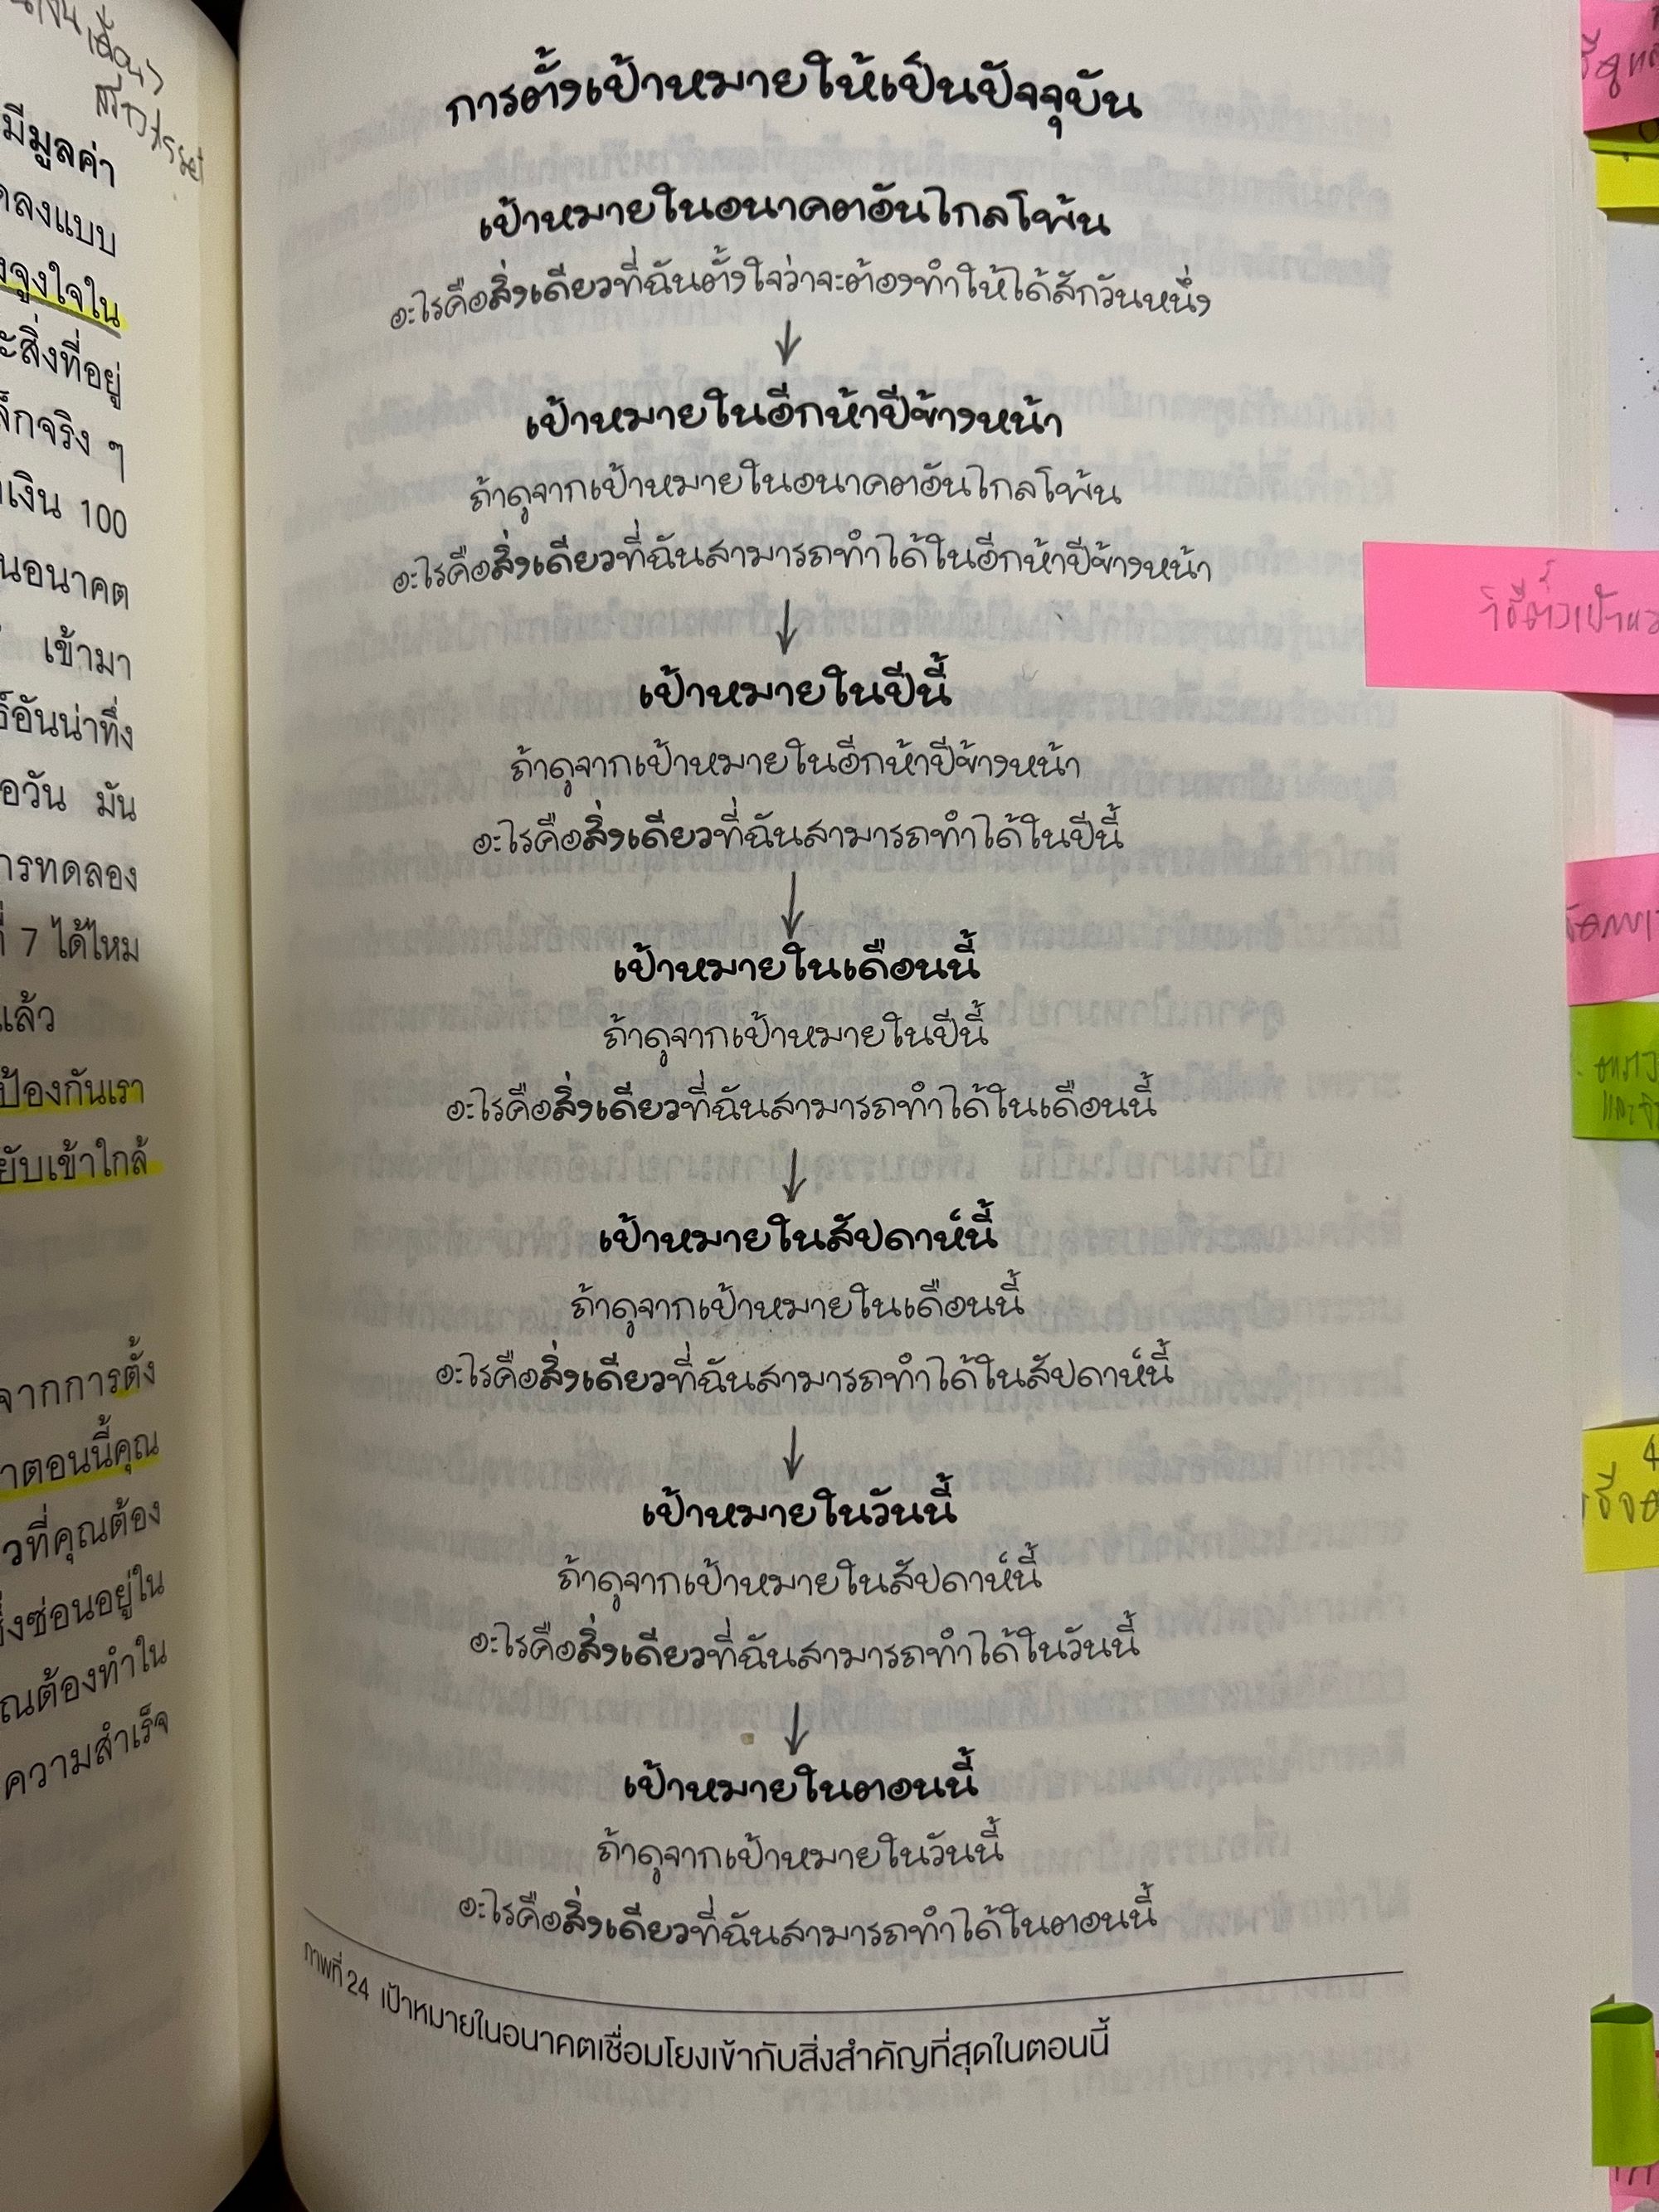 มีมูลค่า
ลงแบบ
จูงใจใน
สิ่งที่อยู่
ล็กจริง ๆ
เงิน 100
นอนาคต
เข้ามา
อันน่าทึ่ง
อวัน มัน
การทดลอง
7 ได้ไหม
แล้ว
ป้องกันเรา
ยับเข้าใกล้
จากการตั้ง
าตอนนี้คุณ
วที่คุณต้อง
ซ่อนอยู่ใน
ณต้องทำใน
ความสำเร็จ
การตั้งเป้าหมายให้เป็นปัจจุบัน
เป้าหมายในอนาคตอันไกลโพ้น
อะไรคือสิ่งเดียวที่ฉันตั้งใจว่าจะต้องทำให้ได้สักวันหนึ่ง
↓
เป้าหมายในอีกห้าปีข้างหน้า
ถ้าดูจากเป้าหมายในอนาคตอันไกลโพ้น
อะไรคือสิ่งเดียวที่ฉันสามารถทำได้ในอีกห้าปีข้างหน้า
↓
เป้าหมายในปีนี้
ถ้าดูจากเป้าหมายในอีกห้าปีข้างหน้า
อะไรคือสิ่งเดียวที่ฉันสามารถทำได้ในปีนี้
↓
เป้าหมายในเดือนนี้
ถ้าดูจากเป้าหมายในปีนี้
อะไรคือสิ่งเดียวที่ฉันสามารถทำได้ในเดือนนี้
↓
เป้าหมายในสัปดาห์นี้
ถ้าดูจากเป้าหมายในเดือนนี้
อะไรคือสิ่งเดียวที่ฉันสามารถทำได้ในสัปดาห์นี้
↓
เป้าหมายในวันนี้
ถ้าดูจากเป้าหมายในสัปดาห์นี้
อะไรคือสิ่งเดียวที่ฉันสามารถทำได้ในวันนี้
↓
เป้าหมายในตอนนี้
ถ้าดูจากเป้าหมายในวันนี้
อะไรคือสิ่งเดียวที่ฉันสามารถทำได้ในตอนนี้
ภาพที่ 24 เป้าหมายในอนาคตเชื่อมโยงเข้ากับสิ่งสำคัญที่สุดในตอนนี้
วิธีตั้งเป้าหม